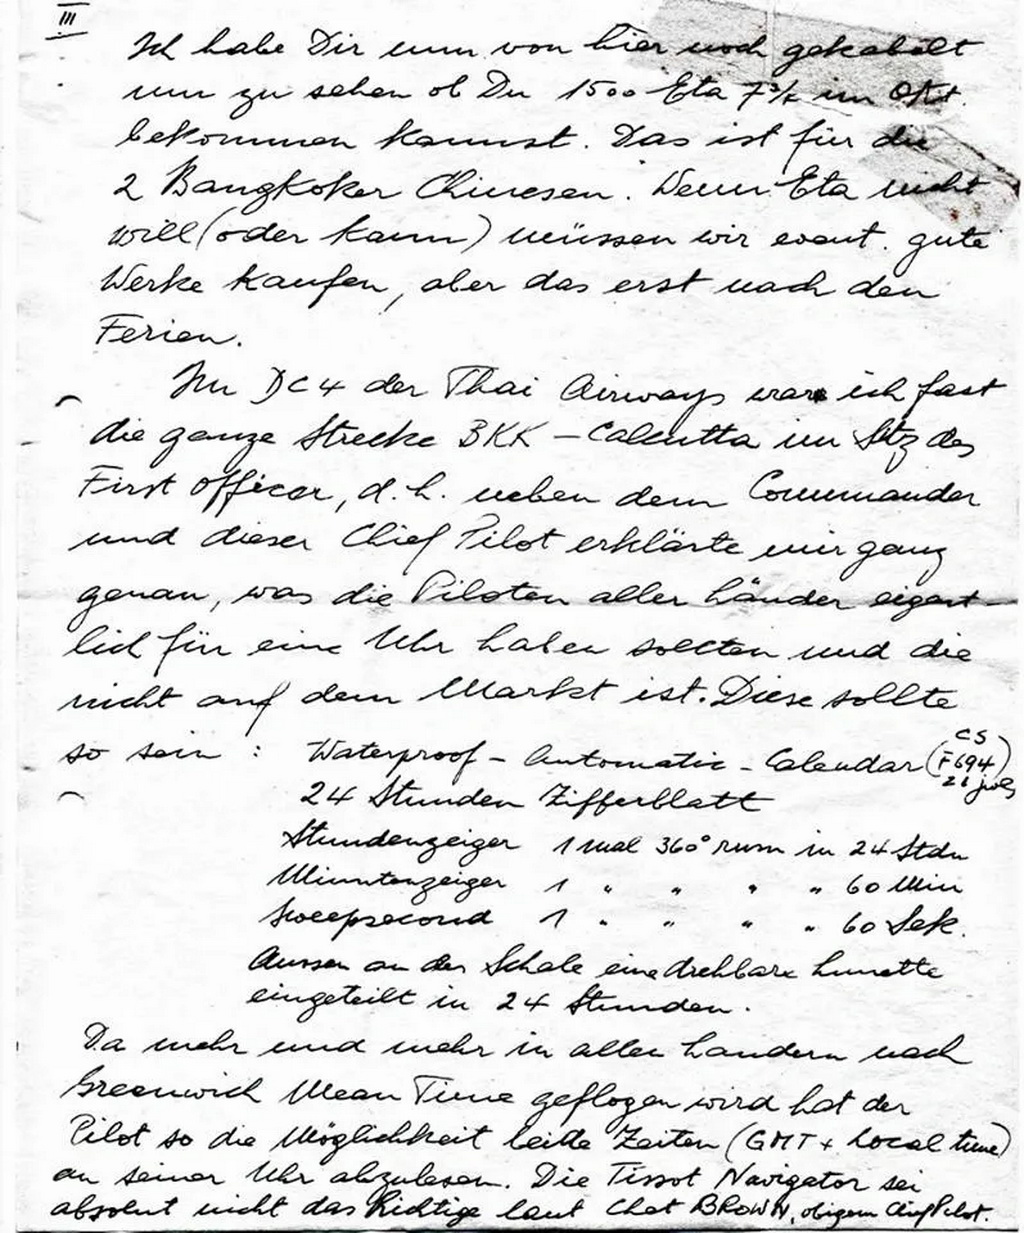 III
Ich habe Dir nun von hier noch gekabelt
um zu sehen ob Du 1500 Eta 7¾ im Okt.
bekommen kannst. Das ist für die
2 Bangkoker Chinesen. Wenn Eta nicht
will (oder kann) müssen wir event. gute
Werke kaufen, aber das erst nach den
Ferien.
Im DC4 der Thai Airways war ich fast
die ganze Strecke BKK – Calcutta im Sitz des
First Officer, d.h. neben dem Commander
und dieser Chief Pilot erklärte mir ganz
genau, was die Piloten aller Länder eigent-
lich für eine Uhr haben sollten und die
nicht auf dem Markt ist. Diese sollte
so sein : Waterproof – Automatic – Calendar (CS
F694)
21 jwls
24 Stunden Zifferblatt
Stundenzeiger 1 mal 360° rum in 24 Stdn
Minutenzeiger 1 " " " " 60 Min
Sweepsecond 1 " " " " 60 Sek.
Aussen an der Schale eine drehbare Lunette
eingeteilt in 24 Stunden.
Da mehr und mehr in allen Landern nach
Greenwich Mean Time geflogen wird hat der
Pilot so die Möglichkeit beide Zeiten (GMT + Local time)
an seiner Uhr abzulesen. Die Tissot Navigator sei
absolut nicht das Richtige laut Chet BROWN, obigem Chief Pilot.